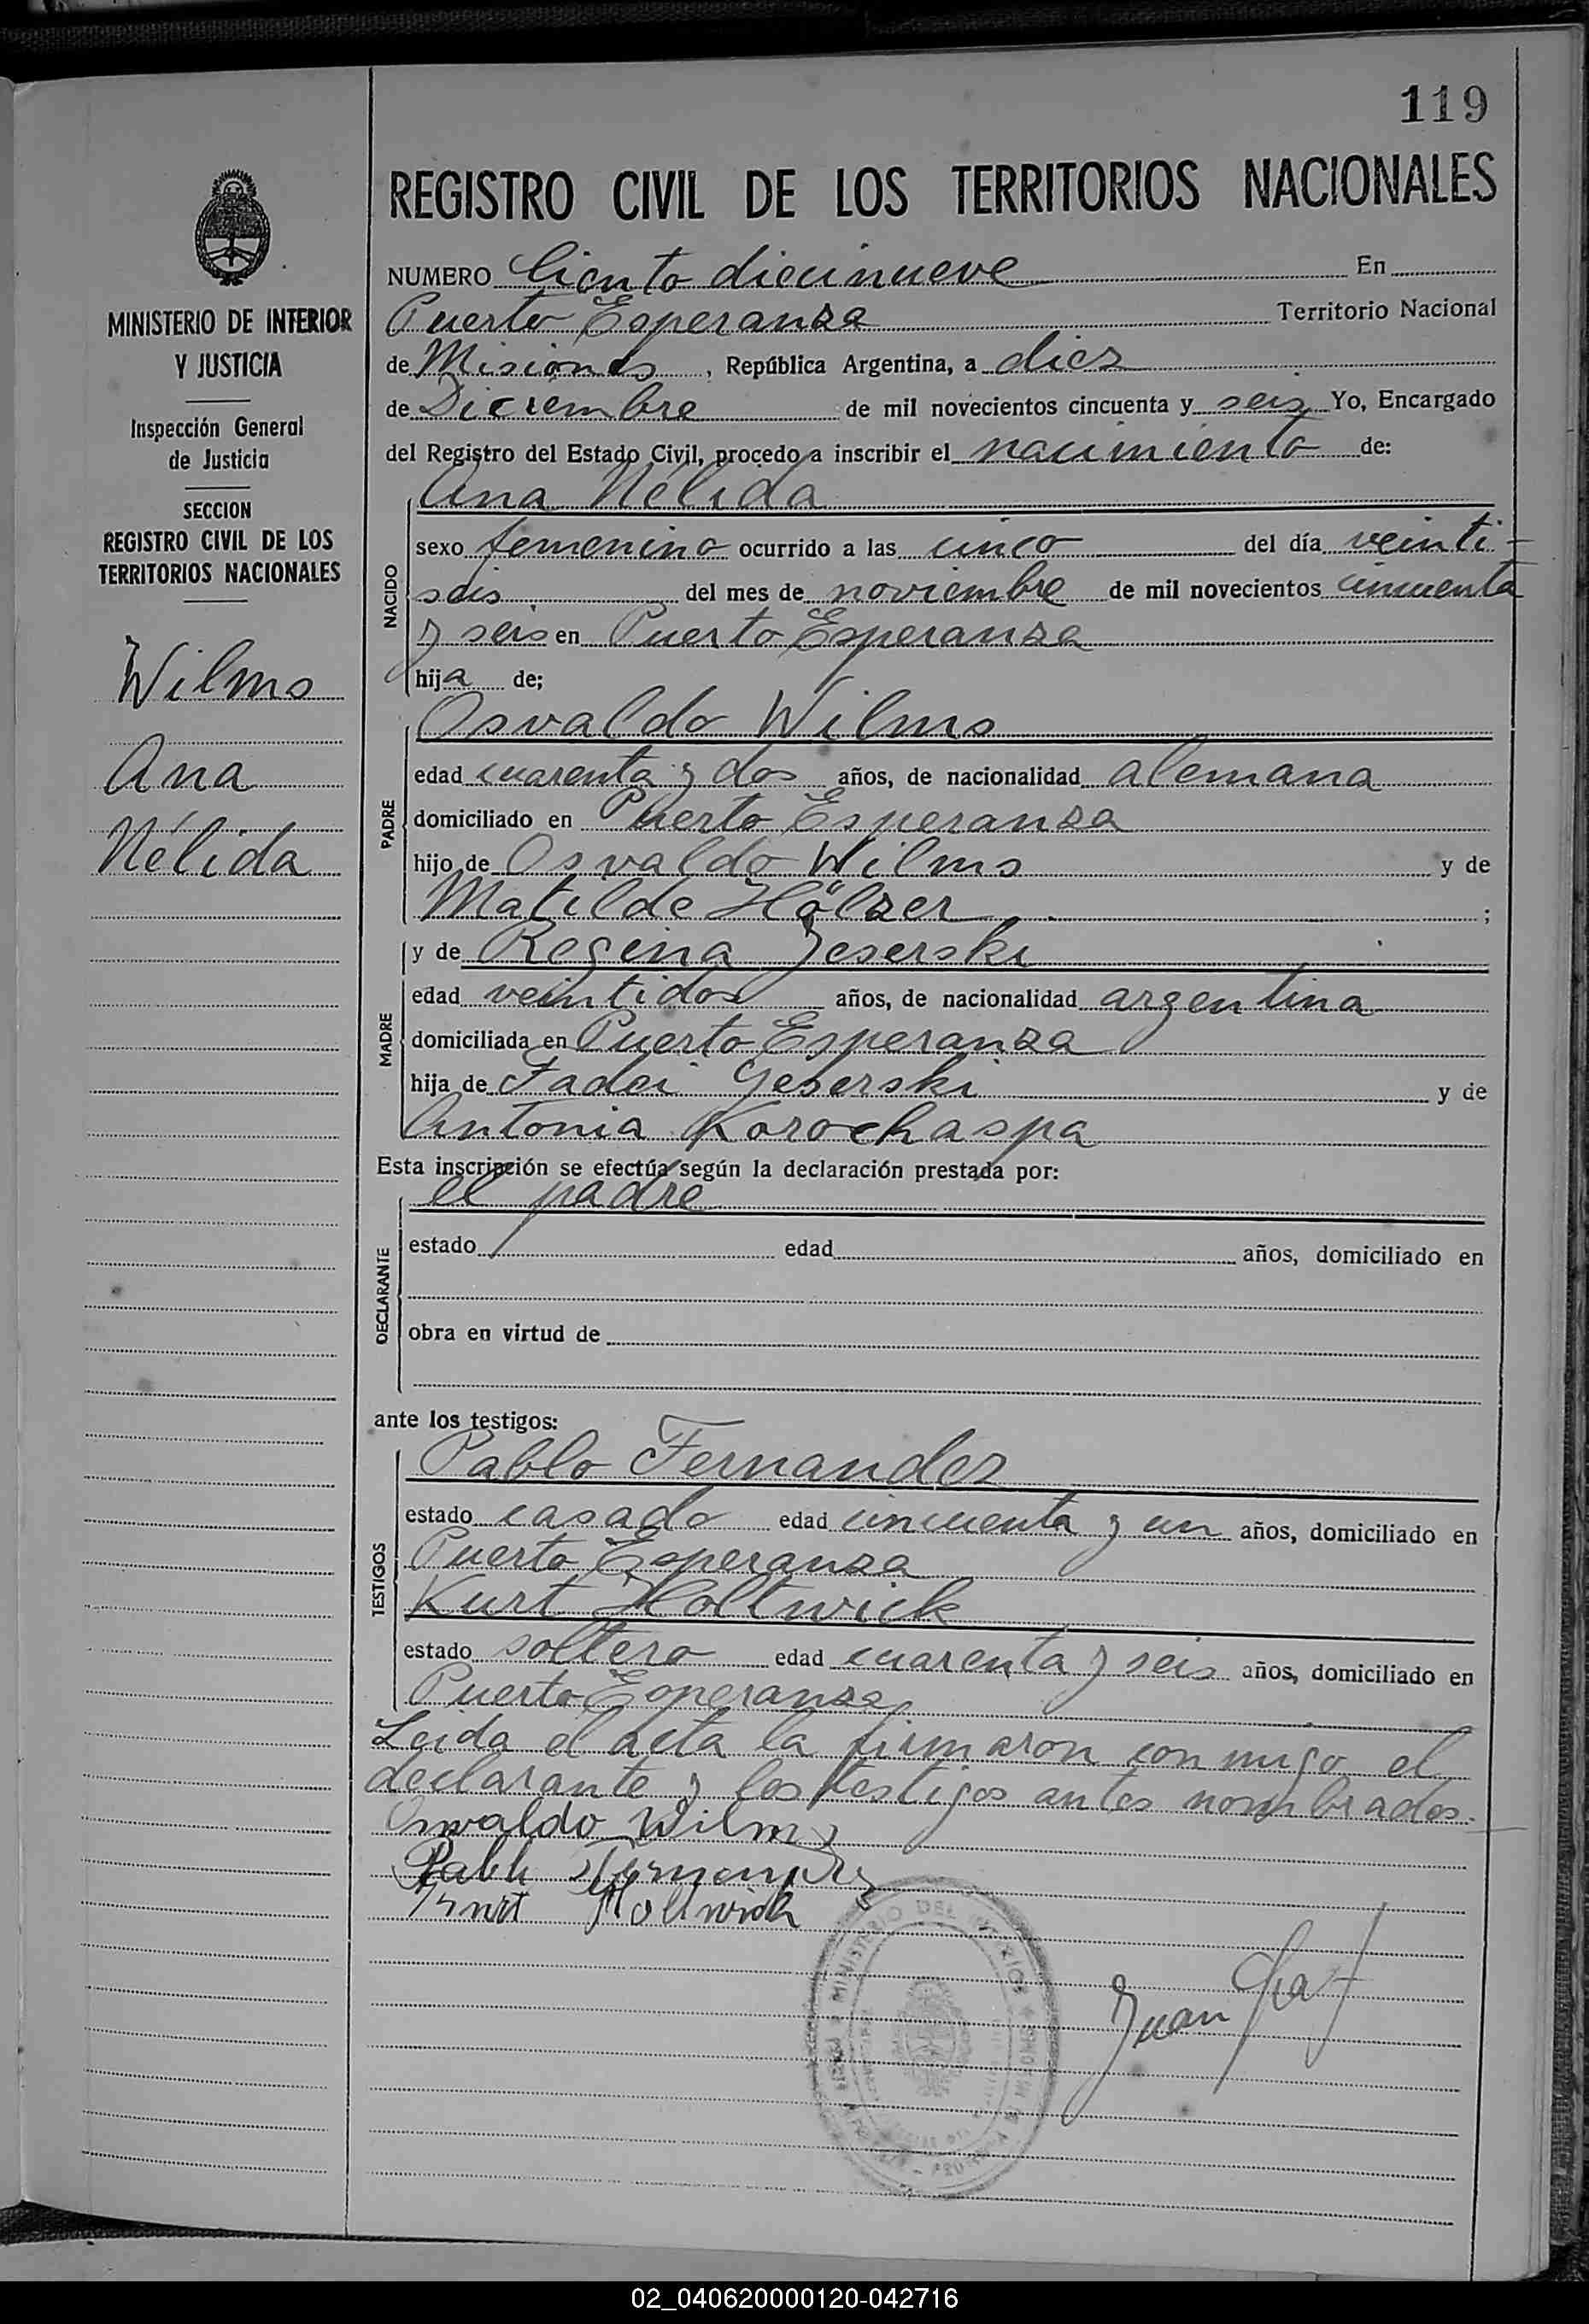 119
REGISTRO CIVIL DE LOS TERRITORIOS NACIONALES
MINISTERIO DE INTERIOR
Y JUSTICIA
Inspección General
de Justicia
SECCION
REGISTRO CIVIL DE LOS
TERRITORIOS NACIONALES
Wilms
Ana
Nélida
NUMERO Ciento diecinueve En
Puerto Esperanza Territorio Nacional
de Misiones, República Argentina, a diez
de Diciembre de mil novecientos cincuenta y seis Yo, Encargado
del Registro del Estado Civil, procedo a inscribir el nacimiento de:
NACIDO
Ana Nélida
sexo femenino ocurrido a las cinco del día veinti-
seis del mes de noviembre de mil novecientos cincuenta
y seis en Puerto Esperanza
hija de;
PADRE
Osvaldo Wilms
edad cuarenta y dos años, de nacionalidad alemana
domiciliado en Puerto Esperanza
hijo de Osvaldo Wilms y de
Matilde Hölzer ;
MADRE
y de Regina Jeserski
edad veintidos años, de nacionalidad argentina
domiciliada en Puerto Esperanza
hija de Fadei Jeserski y de
Antonia Korochaspa
Esta inscripción se efectúa según la declaración prestada por:
DECLARANTE
el padre
estado edad años, domiciliado en
obra en virtud de
ante los testigos:
TESTIGOS
Pablo Fernandez
estado casado edad cincuenta y un años, domiciliado en
Puerto Esperanza
Kurt Holtwick
estado soltero edad cuarenta y seis años, domiciliado en
Puerto Esperanza
Leida el acta la firmaron con migo el
declarante y los testigos antes nombrados.
Oswaldo Wilms
Pablo Fernandez
Kurt Holtwick
MINISTERIO DEL
Juan
02_040620000120-042716